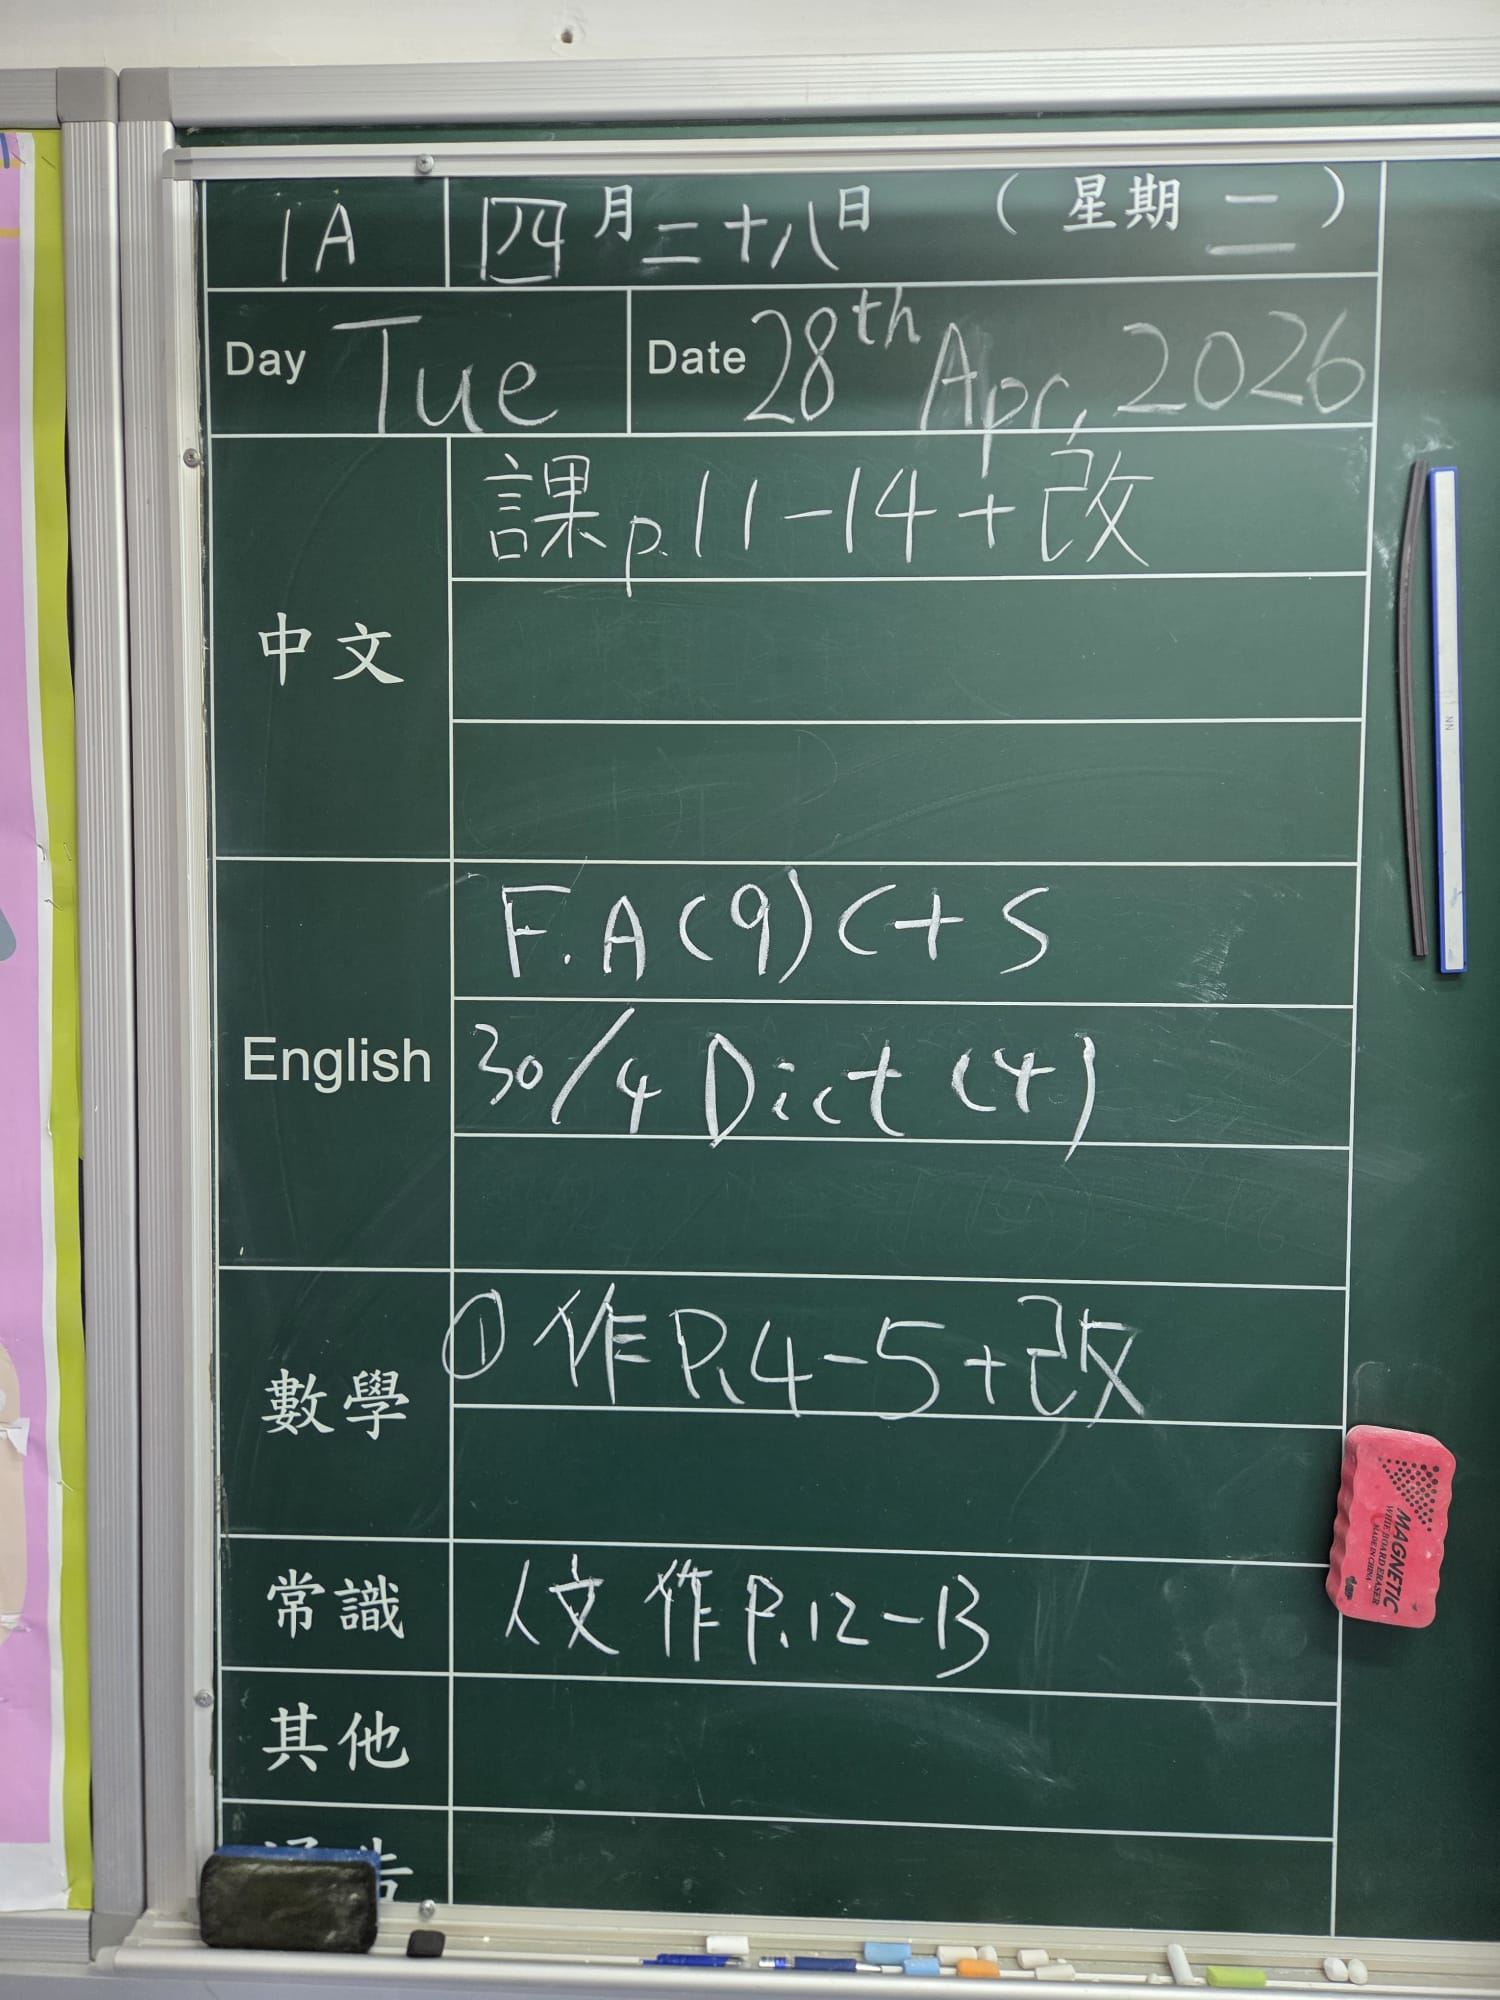 1A 四月二十八日 (星期二)
Day Tue Date 28th Apr, 2026
中文 課p.11-14+改
English F.A(9)C+S
30/4 Dict (4)
數學 ①作P.4-5+改
常識 人文作P.12-13
其他
MAGNETIC
WHITEBOARD ERASER
MADE IN CHINA